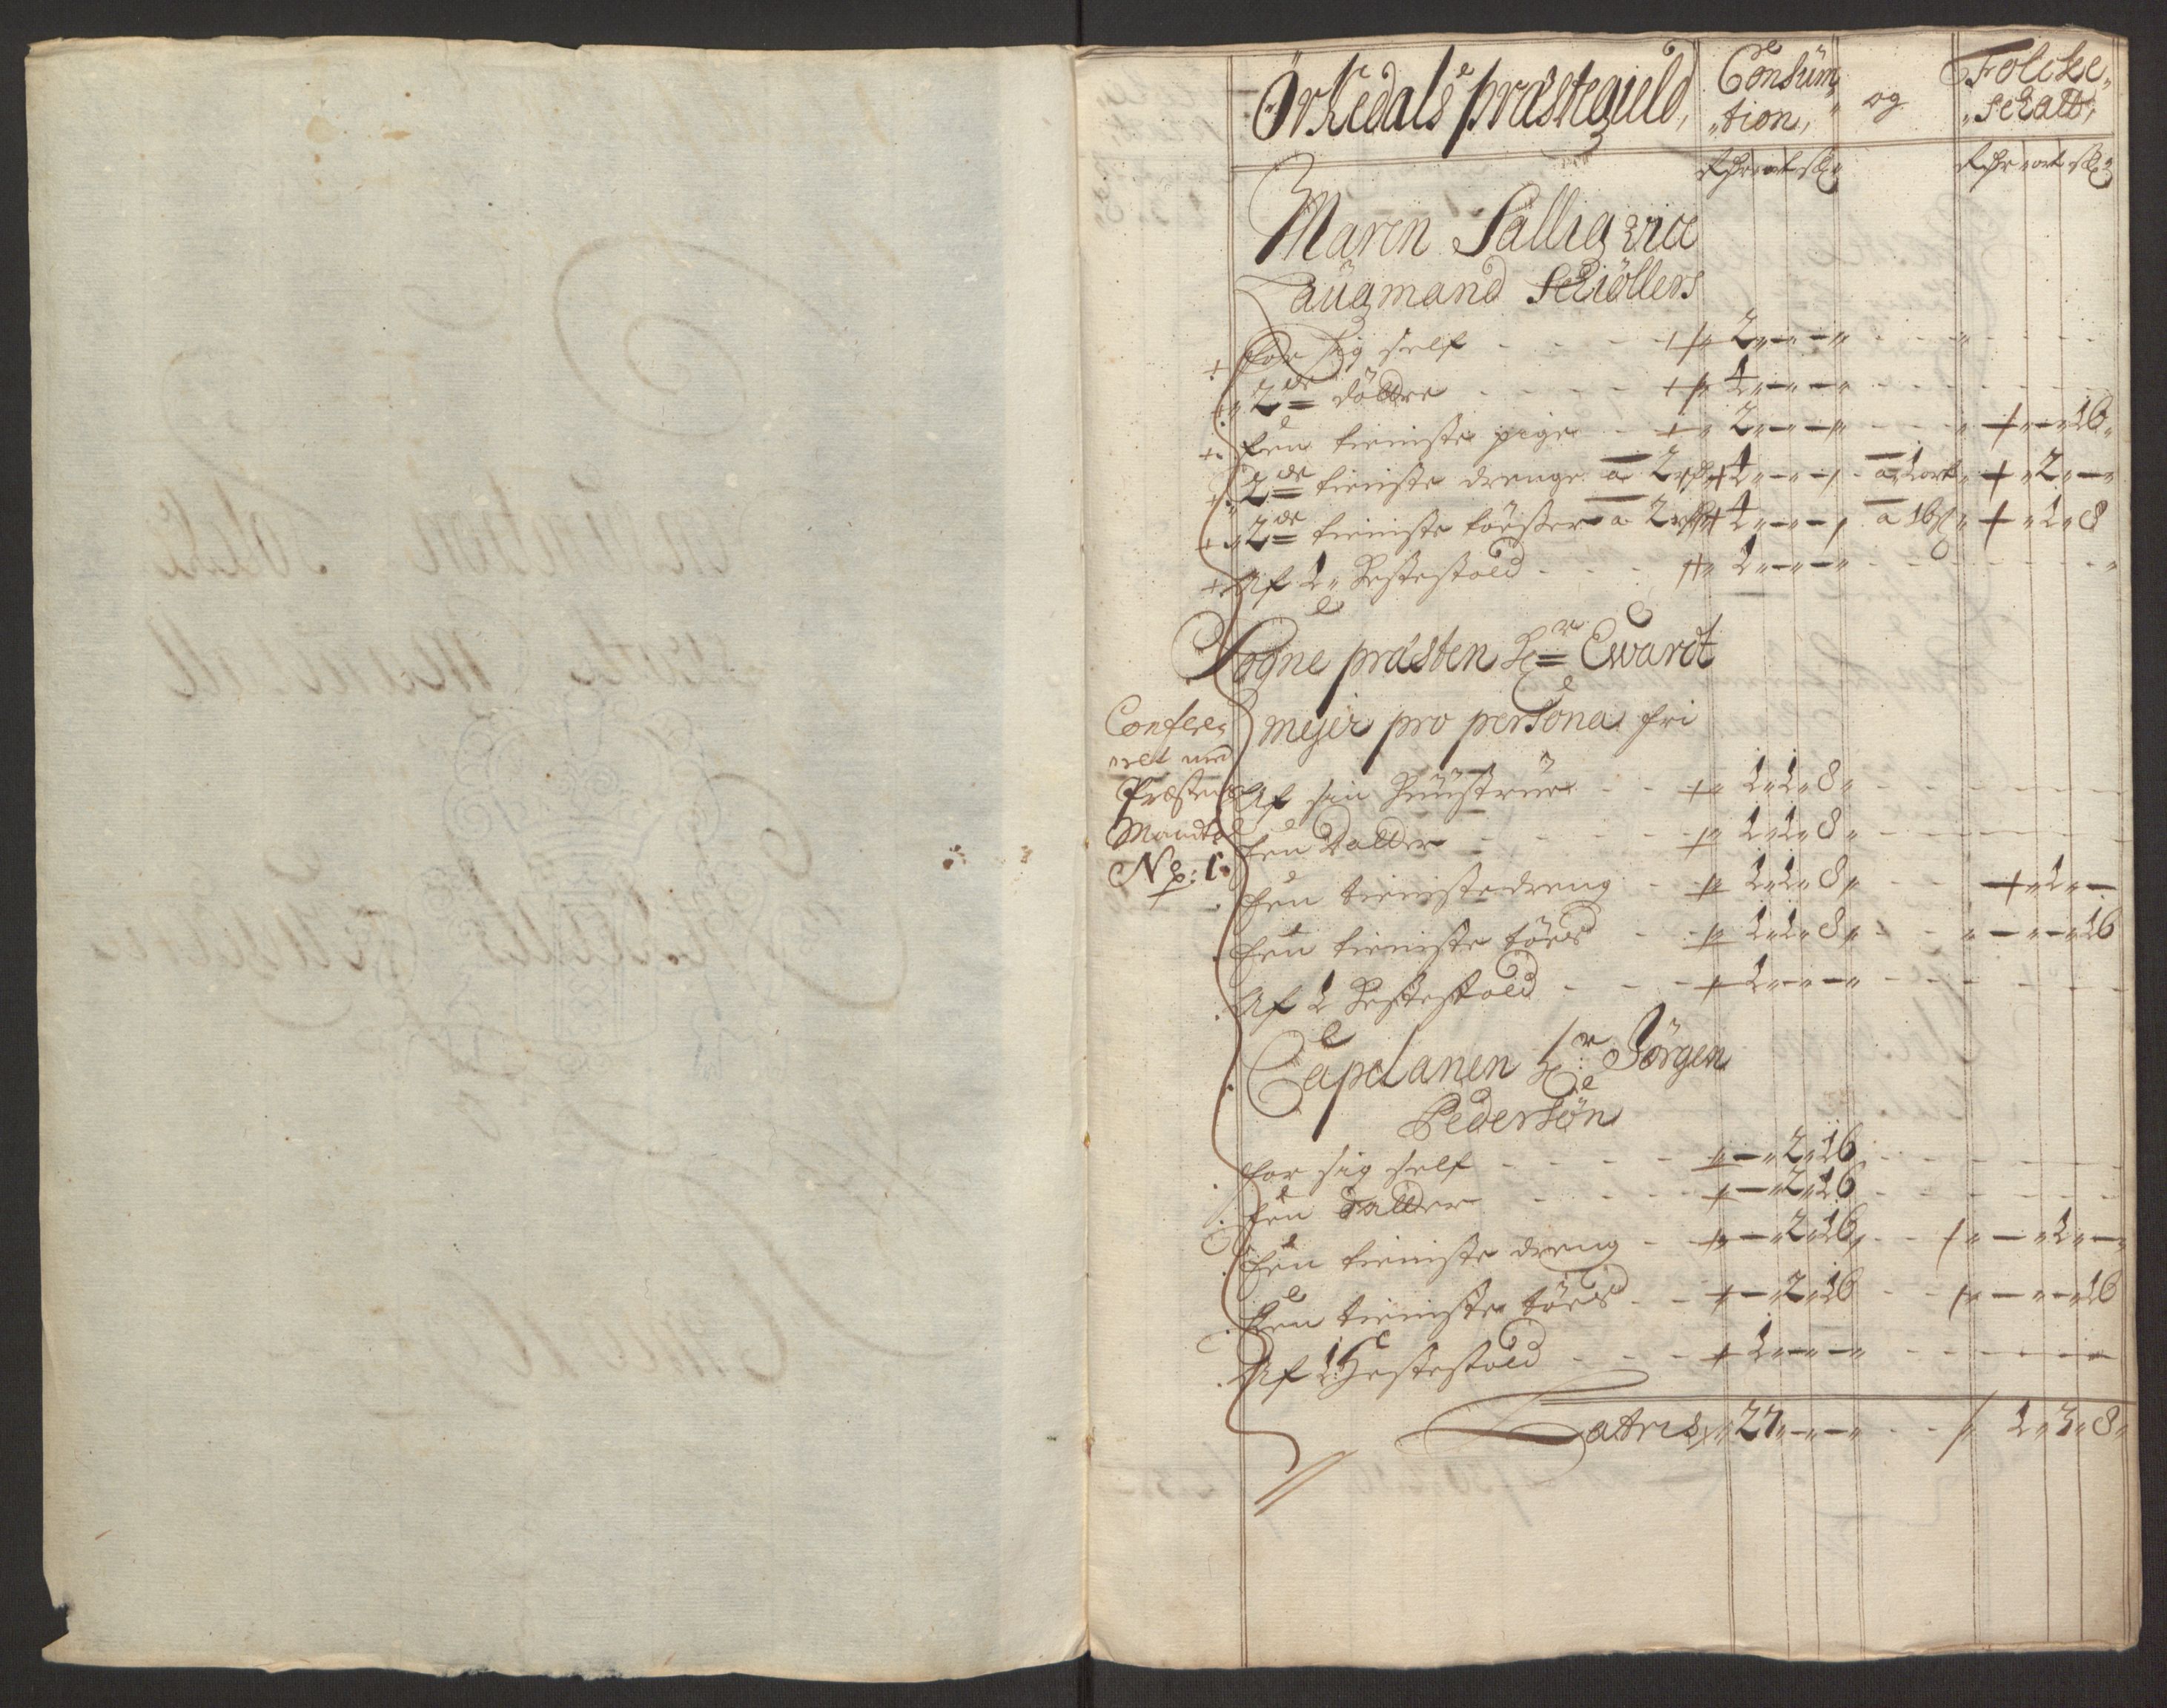 Ørkedals præstegield, Consüm„ og Folcke„
„tion, „Schatt,
Rdr ort sk Rdr ort sk
Maren Sallig vice
Laugmand Schiöllers
For sig self - - - 2„—„—„
„2de döttre - - - 4„—„—„
Een tieniste pige - 2„—„—„ „—„16„
2de tieniste drenge a 2 rdr 4„—„—„ a 1 ort „2„—„
„2de tieniste töeser a 2 rdr 4„—„—„ a 16 sk „1„8
Af 1 Hestestald - - - 1„—„—„
Sogne præsten Hr Ewardt
mejer pro persona fri
Confee„
ret med
Præstens
Mandtal
No: 1.
Af sin Huustrue - - 1„1„8„
Een Datter - - - 1„1„8„
Een tienistedreng - 1„1„8„ - - „1„—
Een tieniste töes - - 1„1„8„ - - „—„—„16
Af 1 Hestestald - - - 1„—„—„
Capelanen Hr: Jörgen
Pedersön
For sig self - - - „—„2„16
Een Datter - - - „—„2„16
Een tieniste dreng - „—„2„16„ - - „—„1„—„
Een tieniste töes - - „—„2„16 - - „—„—„16
Af 1 Hestestald - - - 1„—„—„
Latris „27„—„—„ - - 1„3„8„